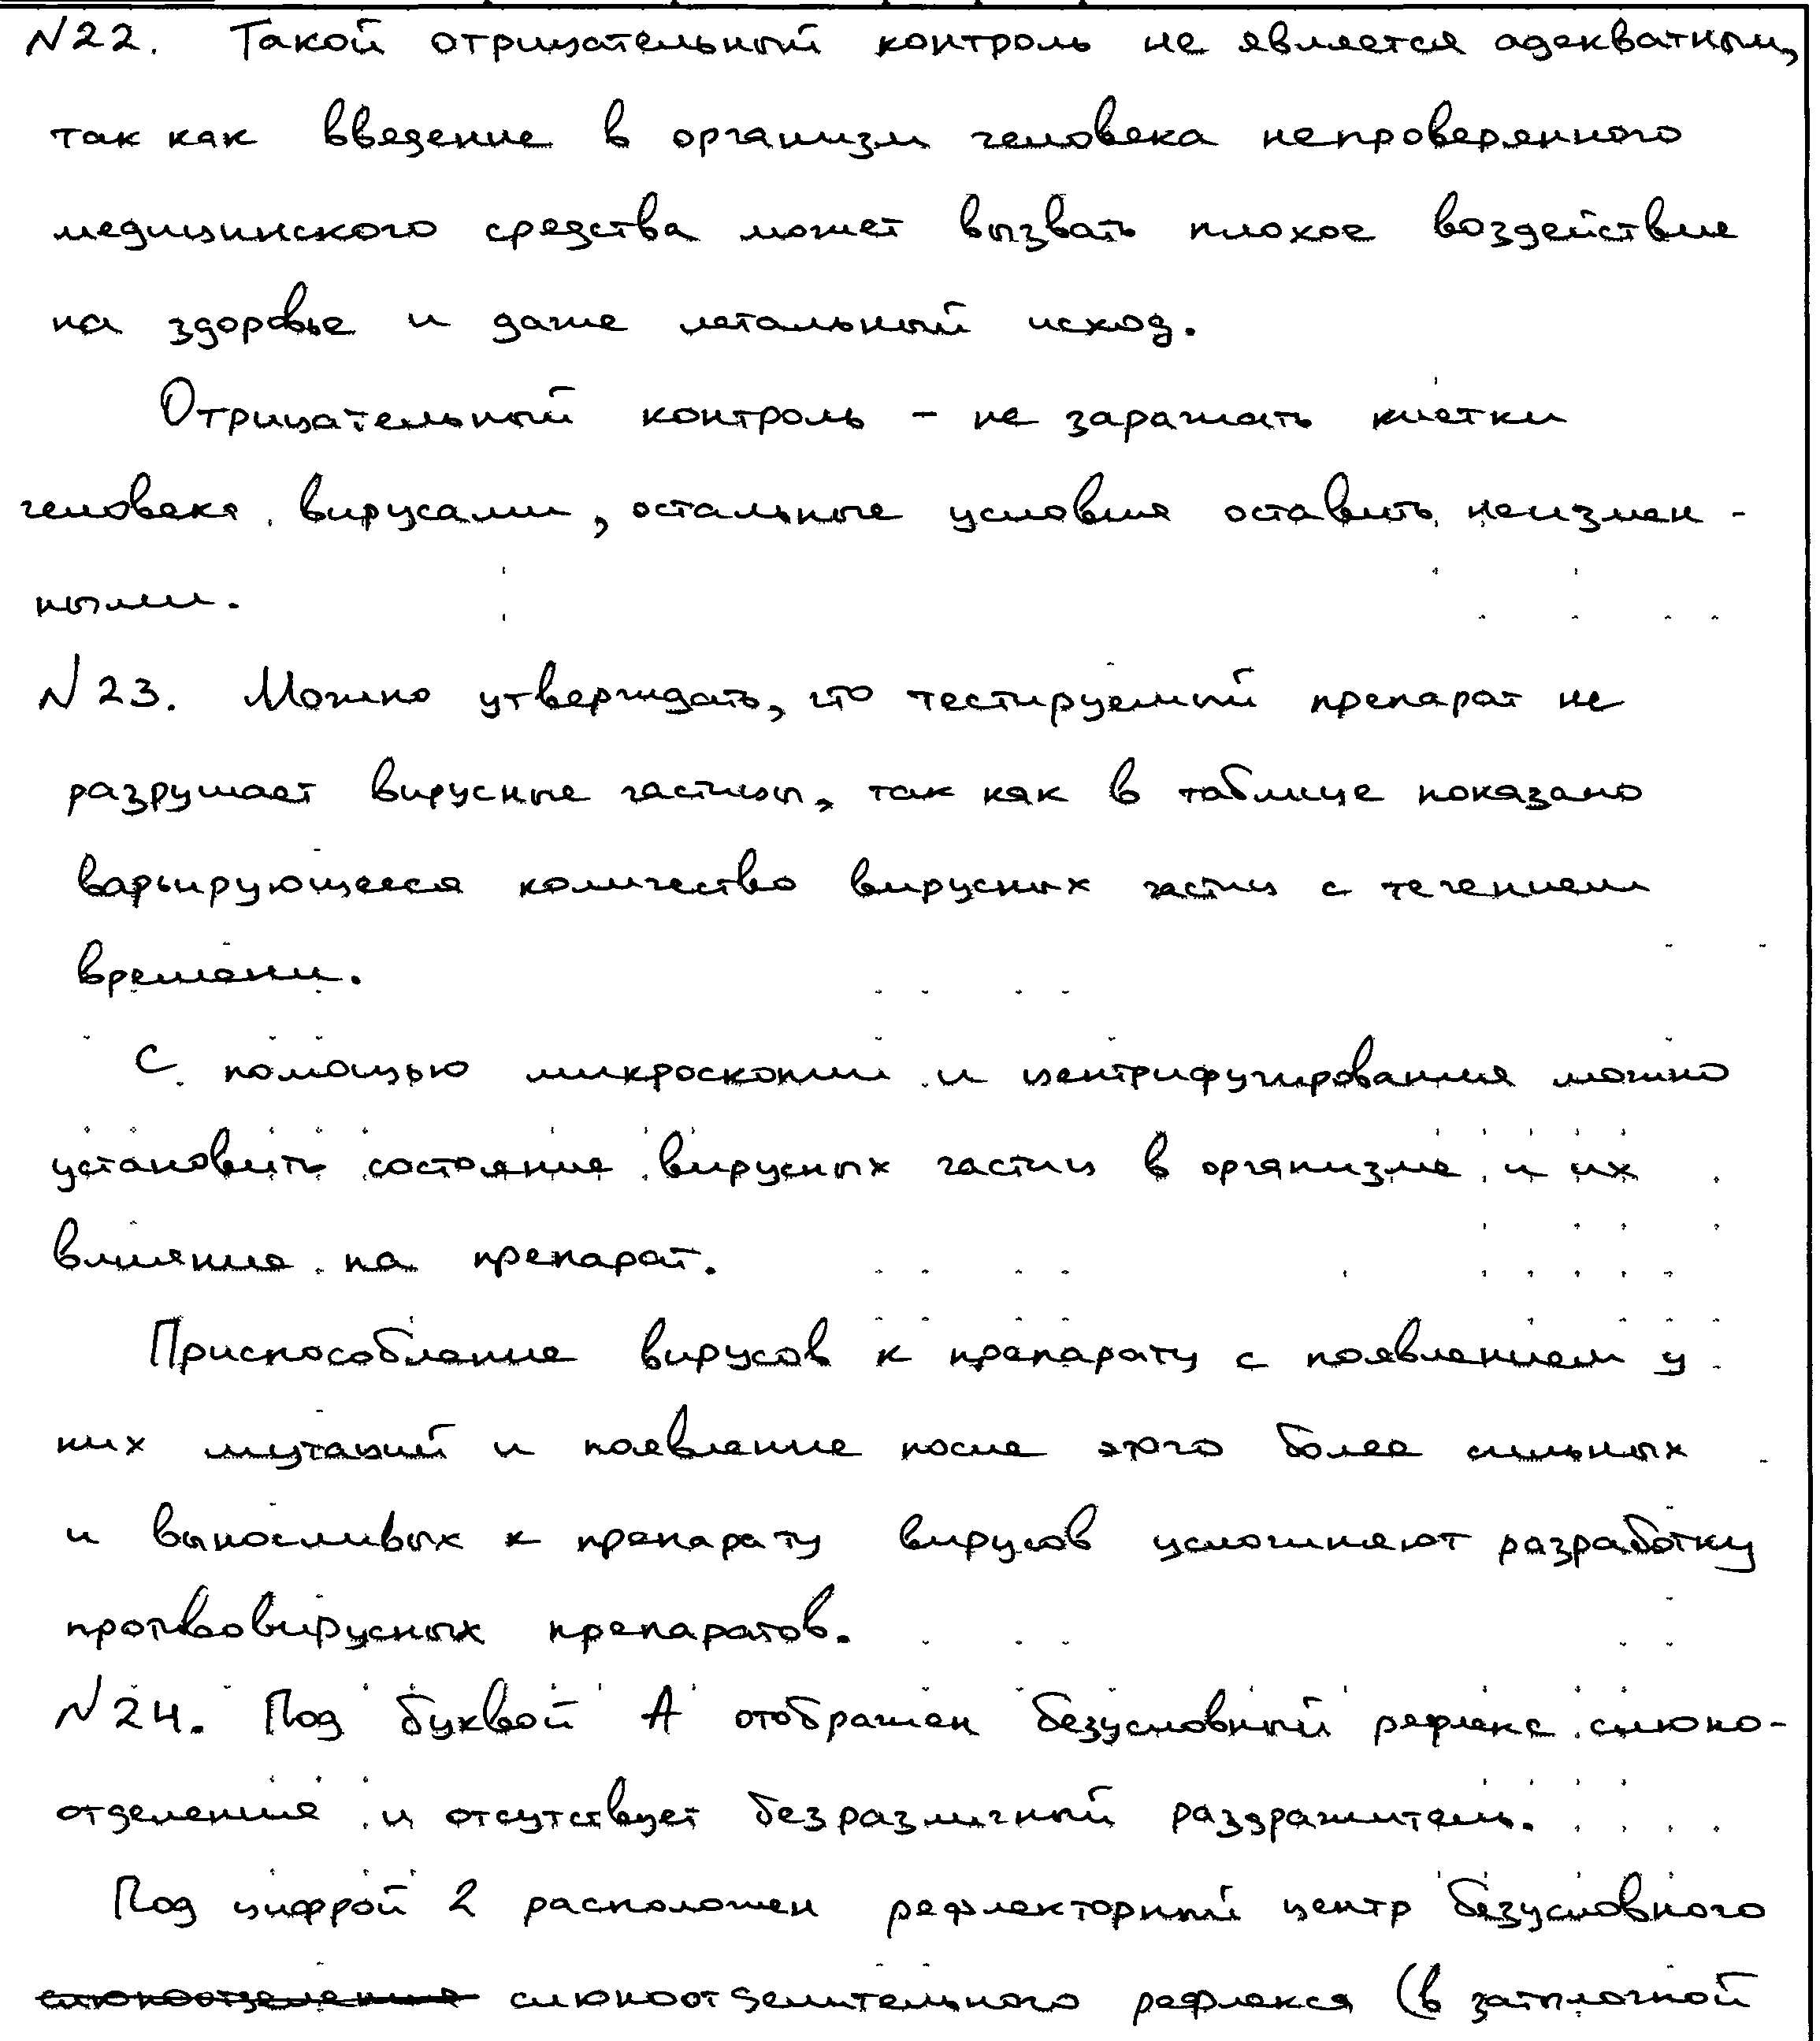 N22. Такой отрицательный контроль не является адекватным,
так как введение в организм человека непроверенного
медицинского средства может вызвать плохое воздействие
на здоровье и даже летальный исход.
Отрицательный контроль – не заражать клетки
человека вирусами, остальные условия оставить неизмен-
ными.
N23. Можно утверждать, что тестируемый препарат не
разрушает вирусные частицы, так как в таблице показано
варьирующееся количество вирусных частиц с течением
времени.
С помощью микроскопии и центрифугирования можно
установить состояние вирусных частиц в организме и их
влияние на препарат.
Приспособление вирусов к препарату с появлением у
них мутаций и появление после этого более сильных
и выносливых к препарату вирусов усложняют разработку
противовирусных препаратов.
N24. Под буквой А отображен безусловный рефлекс слюно-
отделения и отсутствует безразличный раздражитель.
Под цифрой 2 расположен рефлекторный центр безусловного
слюноотделения слюноотделительного рефлекса (в затылочной